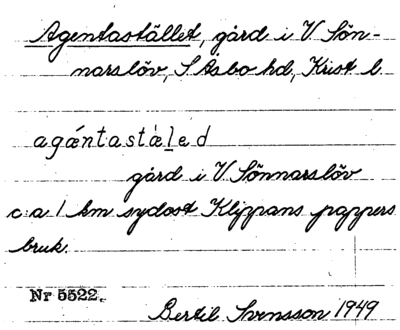 Agentastället, gård i V Sön-
narslöv, S Åsbo hd, Krist l.
agǽntastàled
gård i V Sönnarslöv
c:a 1 km sydost Klippans pappers
bruk.
Nr 5522.
Bertil Svensson 1949